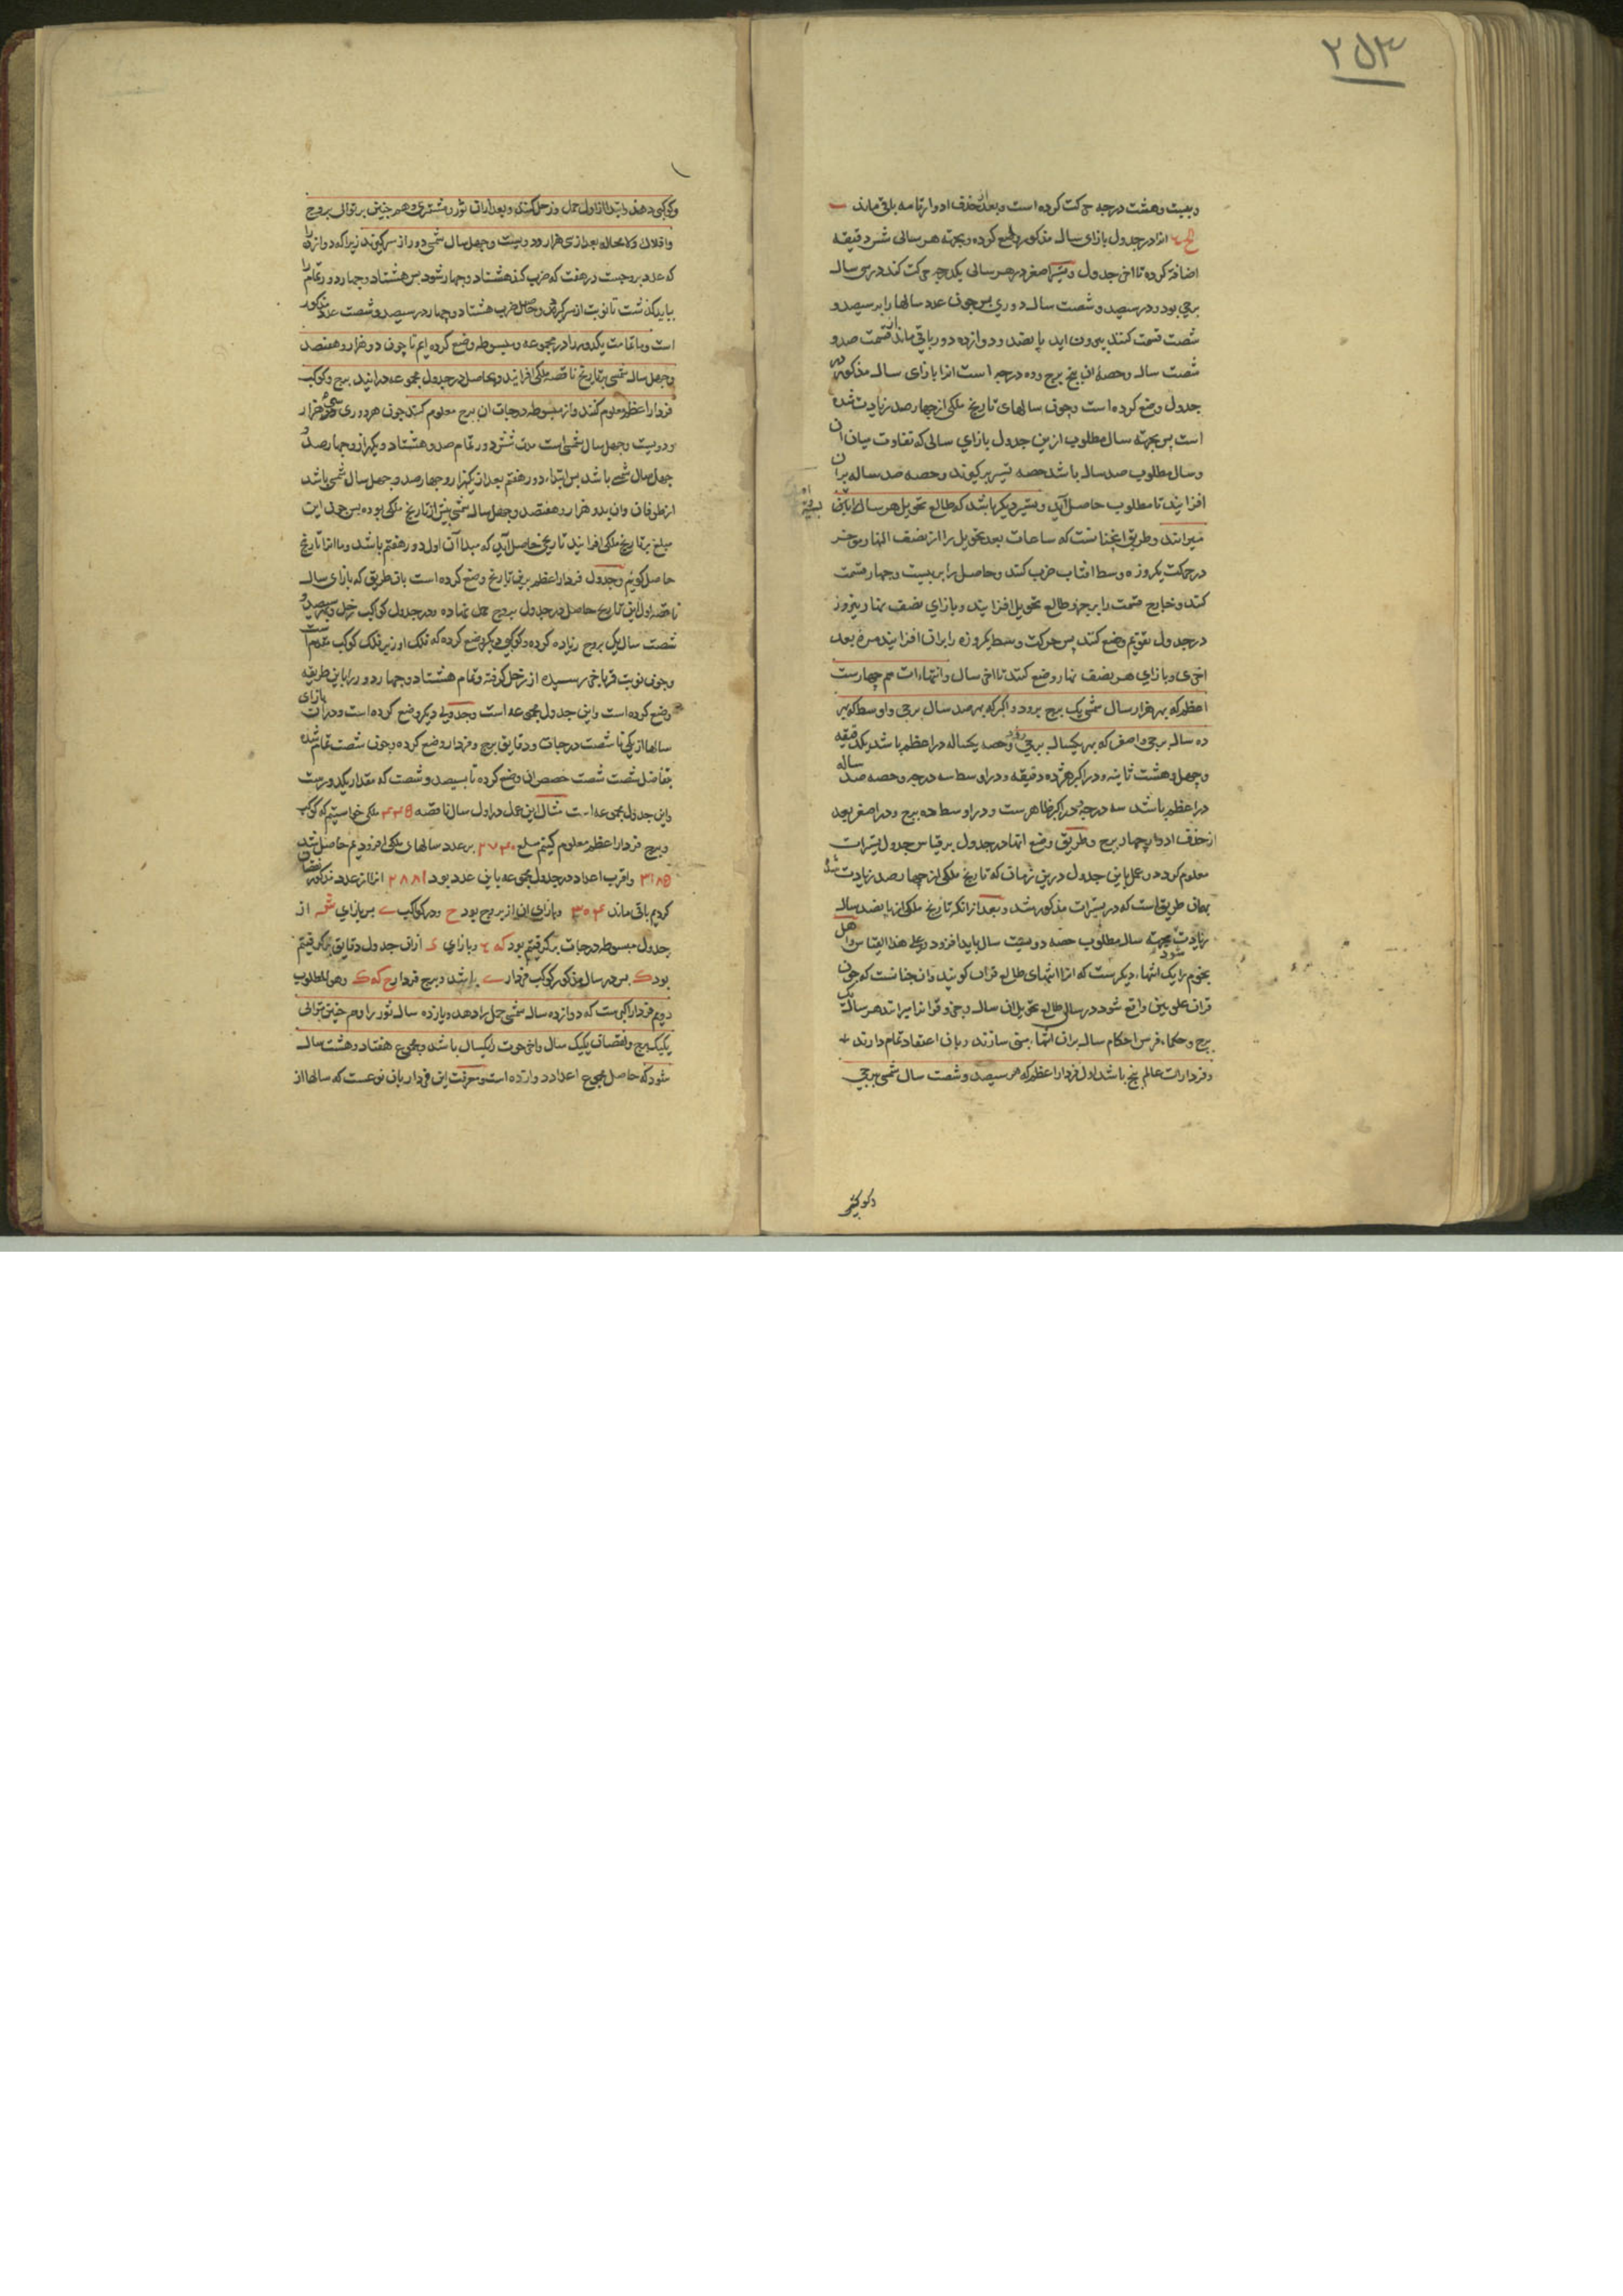 ۲۵۳
وبیست وهشت درجه حرکت کرده است وبعد حذف ادوار تامه باقی ماند
انرا در جدول بازای سال مذکور وضع کرده وبجهة هر سالی شش دقیقه
اضافه کرده تا اخر جدول وتسیر اصغر در هر سالی یکدرجه حرکت کند در سی سال
برجی بود ودر سیصد وشصت سال دوری پس چون عدد سالها را بر سیصد و
شصت قسمت کنند بیرون اید پانصد ودوازده دور باقی ماند از قسمت صد و
شصت سال وحصهٔ ان پنج برج وده درجه است انرا بازای سال مذکور در
جدول وضع کرده است وچون سالهای تاریخ ملکی از چهارصد زیادت شده
است پس بجهة سال مطلوب ازین جدول بازای سالی که تفاوت میان ان
وسال مطلوب صد سال باشد حصه تسیر برکیرند وحصه صد ساله بران
افزایند تا مطلوب حاصل اید وتسیر دیکر باشد که طالع تحویل هر سال را بدان
میرانند وطریق انچنانست که ساعات بعد تحویل را از نصف النهار موخر
در حرکت یکروزه وسط افتاب ضرب کنند وحاصل را بر بیست وچهار قسمت
کنند وخارج قسمت را بر جزو طالع تحویل افزایند وبازای نصف نهار نیروز
در جدول تقویم وضع کنند پس حرکت وسط یکروزه را بران افزایند مرة بعد
اخری وبازای هر نصف نهار وضع کنند تا اخر سال وانتهاءات هم چهارست
اعظم که بهر هزار سال شمسی یک برج برود واکبر که بهر صد سال برجی واوسط که بهر
ده سال برجی واصغر که بهر یکسال برجی رود وحصه یکساله در اعظم باشد یکدقیقه
وچهل وهشت ثانیه ودر اکبر هژده دقیقه ودر اوسط سه درجه وحصه صد ساله
در اعظم باشد سه درجه ودر اکبر ظاهرست ودر اوسط ده برج ودر اصغر بعد
از حذف ادوار چهار برج وطریق وضع انها در جدول بر قیاس جدول تسیرات
معلوم کردد وعمل باین جدول درین زمان که تاریخ ملکی از چهارصد زیادت شد
بهمان طریق است که در تسیرات مذکور شد وبعد از انکه تاریخ ملکی از پانصد سال
زیادت شود بجهة سال مطلوب حصه دویست سال باید افزود وعلی هذا القیاس واهل
نجوم را یک انتهاء دیکرست که انرا انتهای طالع قران کویند وان چنانست که چون
قران علویین واقع شود در سال طالع تحویل ان سال وجزو قران را میرانند هر سال یک
برج وحکماء فرس احکام سال بران انتها مبتنی سازند وبان اعتقاد تمام دارند
وفردارات عالم پنج باشد اول فردار اعظم که هر سیصد وشصت سال شمسی برجی
وکوکبی
وکوکبی دهند وابتدا از اول حمل وزحل کنند وبعد ازان ثور ومشتری وهم چنین بر توالی بروج
وافلاک ولامحاله بعد از سی هزار ودویست وچهل سال شمسی دور از سر کیرند زیرا که دوازده را
که عدد بروجست در هفت که ضرب کنند هشتاد وچهار شود پس هشتاد وچهار دور تمام را
بباید کذشت تا نوبت از سر کیرد وحاصل ضرب هشتاد وچهار در سیصد وشصت عدد مذکور
است وما تمامت یکدور را در مجموعه ومبسوطه وضع کرده ایم تا چون دو هزار وهفتصد
وچهل سال شمسی بر تاریخ ناقصه ملکی افزایند وبحاصل در جدول مجموعه درایند برج وکوکب
فردار اعظم معلوم کنند واز مبسوطه درجات ان برج معلوم کنند چون هر دوری سی هزار
ودویست وچهل سال شمسی است مدت شش دور تمام صد وهشتاد ویکهزار وچهارصد و
چهل سال شمسی باشد پس ابتداء دور هفتم بعد از یکهزار وچهارصد وچهل سال شمسی باشد
از طوفان وان بدو هزار وهفتصد وچهل سال شمسی پیش از تاریخ ملکی بوده پس چون این
مبلغ بر تاریخ ملکی افزایند تاریخی حاصل اید که مبدا آن اول دور هفتم باشد وما انرا تاریخ
حاصل کوئیم وجدول فردار اعظم برین تاریخ وضع کرده است بان طریق که بازای سال
ناقصه اول این تاریخ حاصل در جدول بروج حمل نهاده ودر جدول کواکب زحل وبهر سیصد و
شصت سال یک بروج زیاده کرده وکوکبی دیکر وضع کرده که فلک او زیر فلک کوکب مقدم است
وچون نوبت قمر باخر رسیده از زحل کرفته وتمام هشتاد وچهار دور را باین طریقه
وضع کرده است واین جدول مجموعه است وجدولی دیکر وضع کرده است ودران بازای
سالها از یکی تا شصت درجات ودقایق برج وفردار وضع کرده وچون شصت تمام شده
بتفاضل شصت شصت حصص ان وضع کرده تا بسیصد وشصت که مقدار یکدورست
واین جدول مجموعه است مثال این عمل در اول سال ناقصه ۴۴۵ ملکی خواستیم که کوکب
وبرج فردار اعظم معلوم کنیم مبلغ ۲۷۴۰ بر عدد سالهای ملکی افزودیم حاصل شد
۳۱۸۵ واقرب اعداد در جدول مجموعه باین عدد بود ۲۸۸۱ انرا از عدد مذکور نقصان
کردیم باقی ماند ۳۰۴ وبازای ان از بروج بود ح ودر کواکب پس بازای ش از
جدول مبسوطه درجات برکرفتیم بود که وبازای د ازان جدول دقایق برکرفتیم
بود ک پس در سال مذکور کوکب فردار باشد وبرج فردار ح که ک وهو المطلوب
دویم فردار اکبرست که دوازده سال شمسی حمل را دهد ویازده سال ثور را وهم چنین بتوالی
یکیک برج ونقصان یکیک سال واخر حوت را یکسال باشد ومجموع هفتاد وهشت سال
شود که حاصل مجموع اعداد دوازده است ومعرفت این فردار بان نوعست که سالها از